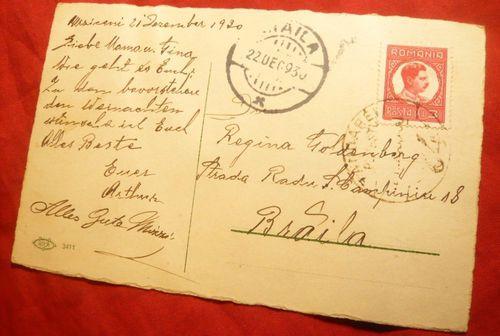 21 Dezember 1930
Liebe Mama u. Tina
Wie geht es Euch,
Zu den bevorstehen
den Weinachten
wünsche ich Euch
Alles Beste
Euer
Arthur
Alles Gute
3411
BRĂILA
22 DEC 930
ROMANIA
Posta 3
Regina Goldenberg
Strada Radu S. Câmpiniu 18
Brăila